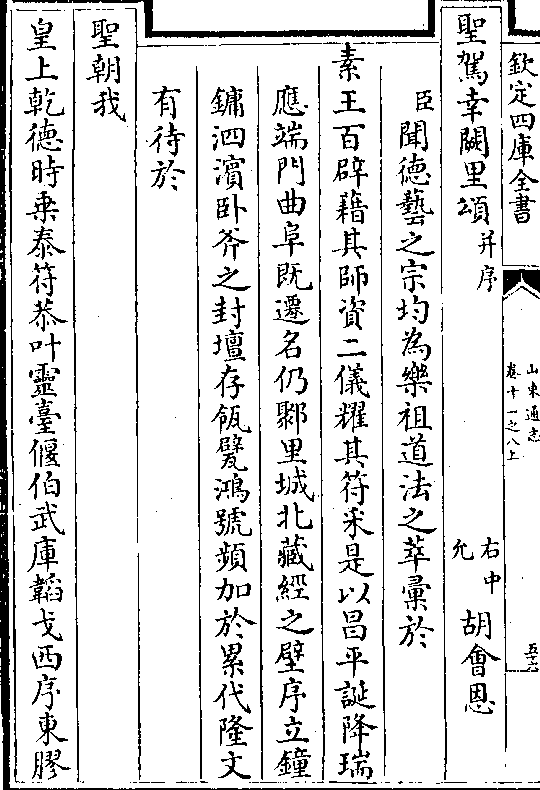 欽定四庫全書
山東通志
卷十一之八上
五十六
聖駕幸闕里頌并序
右中允
胡會恩
臣聞德藝之宗均為樂祖道法之萃彙於
素王百辟藉其師資二儀耀其符采是以昌平誕降瑞
應端門曲阜既遷名仍鄹里城北藏經之壁序立鐘
鏞泗濱卧斧之封壇存瓴甓鴻號蘋加於累代隆文
有待於
聖朝我
皇上乾德時乗泰符恭叶靈臺偃伯武庫韜戈西序東膠